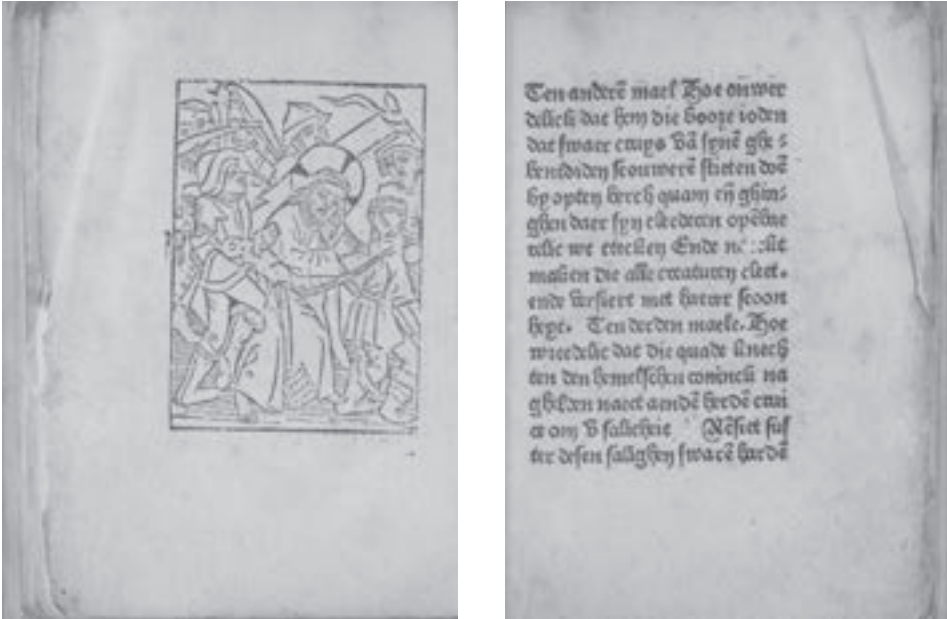 Ten anderē mael Hoe onwer
delick dat hem die booze ioden
dat swaer cruys vā synē ghe⸗
benididen scouwerē stieten doē
hy opten berch quam eñ ghin⸗
ghen daer syn cleederen opēbae
relic we etrecken Ende
maken die alle creaturen cleet.
ende versiert met haerer scoon
heyt. Ten derden maele. Hoe
wreedelic dat die quade knech
ten den hemelschen coninck na
ghelden naect aendē herdē crui
ce om salicheit siet sus
ter desen salighen swarē hardē